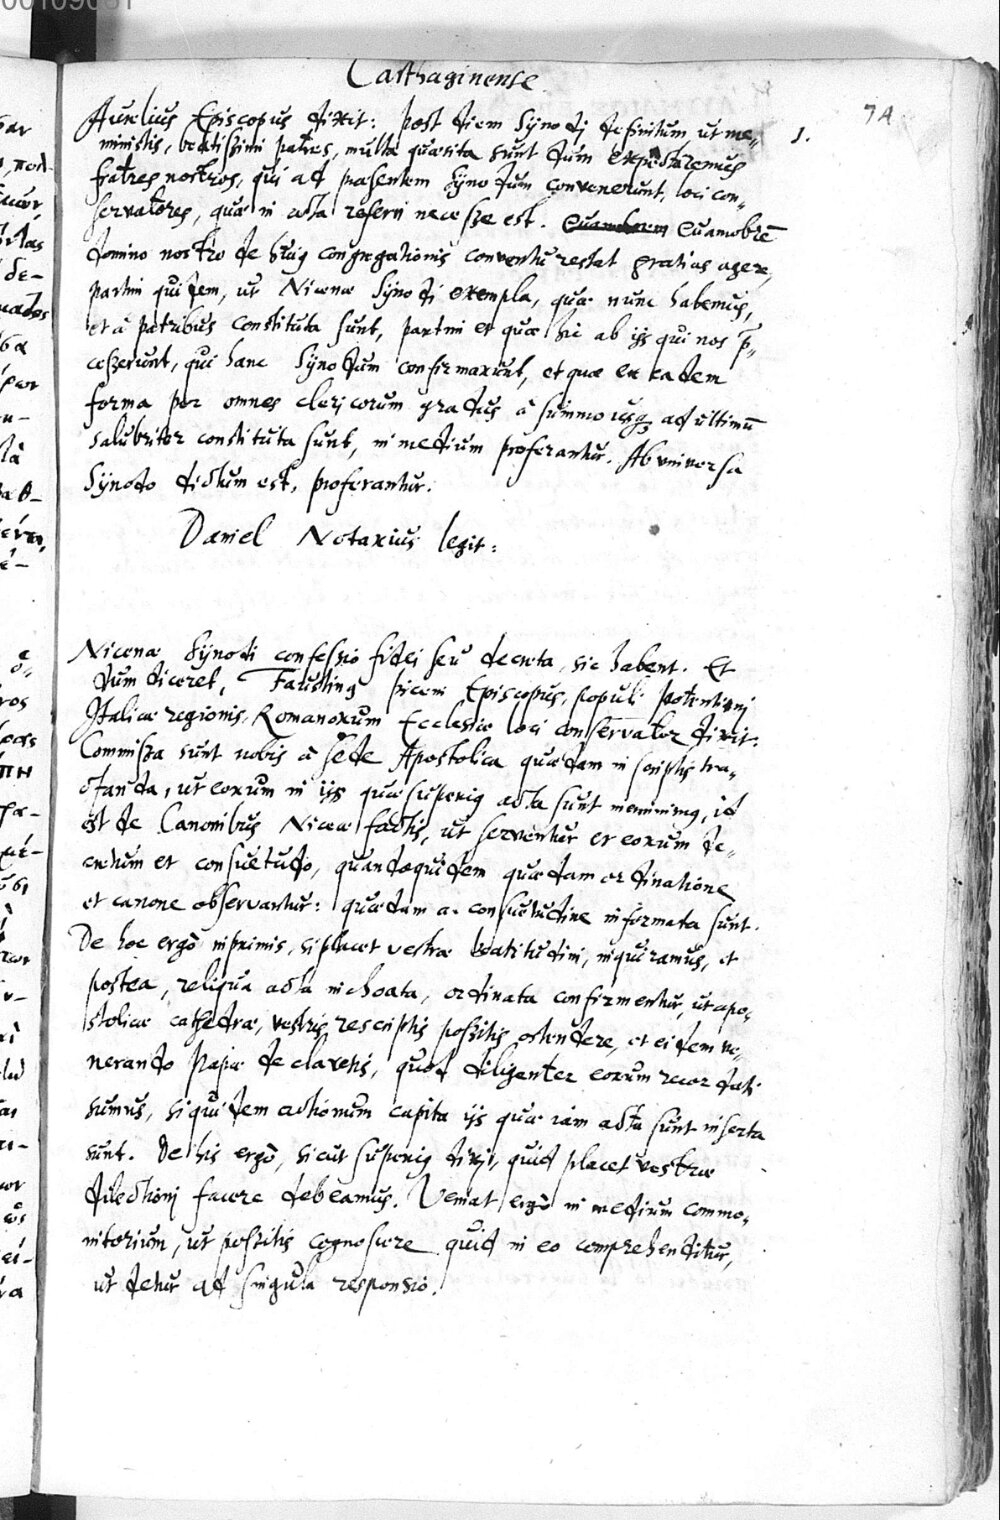 Carthaginense
74
Aurelius Episcopus dixit: post diem Synodi definitum ut me-
1.
ministis, beatissimi patres, multa quæsita sunt dum expectaremus
fratres nostros, qui ad præsentem Synodum convenerunt, loci con-
servatores, quæ in acta referri necesse est. Quamobrẽ
domino nostro de huius congregationis conventu restat gratias agere,
partim quidem, ut Nicenæ Synodi exempla, quæ nunc habemus,
et à patribus constituta sunt, partim et quæ hic ab ijs qui nos p̄-
cesserunt, qui hanc Synodum confirmarunt, et quæ ex eadem
forma per omnes clericorum gradus à summo usq; ad ultimũ
salubriter constituta sunt, in medium proferantur. Ab universa
Synodo dictum est, proferantur.
Daniel Notarius legit:
Nicenæ Synodi confessio fidei seu decreta, sic habent. Et
dum diceret, Faustinus Episcopus, populi Potentini
Italicæ regionis, Romanorum Ecclesiæ loci conservator dixit:
Commissa sunt nobis à sede Apostolica quædam in scriptis tra-
ctanda, ut eorum in ijs quæ superius acta sunt meminimus, id
est de Canonibus Niceæ factis, ut serventur et eorum de-
cretum et consuetudo, quandoquidem quædam ordinatione
et canone observantur: quædam a. consuetudine informata sunt.
De hoc ergò inprimis, si placet vestræ beatitudini, inquiramus, et
postea, reliqua acta inchoata, ordinata confirmentur, ut apo-
stolicæ cathedræ, vestris rescriptis possitis ostendere, et eidem ve-
nerando Papæ declaretis, quod diligenter eorum recordati
sumus, siquidem actionum capita ijs quæ iam acta sunt inserta
sunt. De his ergò, sicut superius dixi, quid placet vestræ
dilectioni facere debeamus. Veniat ergò in medium commo-
nitorium, ut possitis cognoscere quid in eo comprehenditur,
ut detur ad singula responsio.